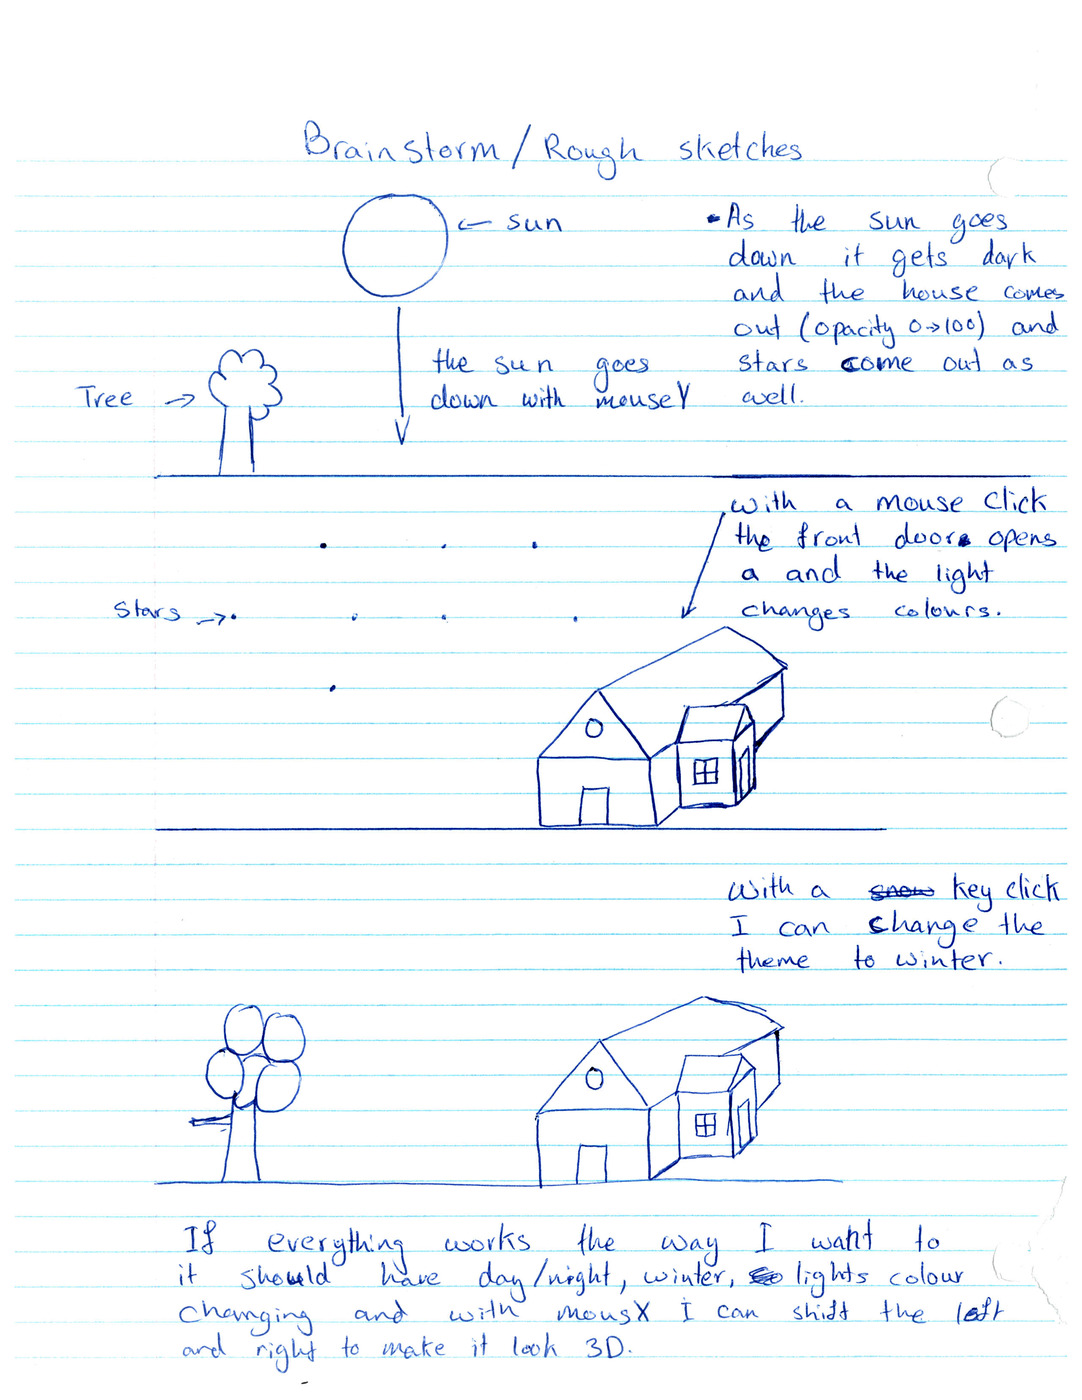 Brainstorm/Rough sketches
← sun
• As the sun goes
down it gets dark
and the house comes
out (opacity 0→100) and
stars come out as
well.
the sun goes
down with mouseY
Tree →
with a mouse click
the front door opens
a and the light
changes colours.
Stars →
With a snow key click
I can change the
theme to winter.
If everything works the way I want to
it should have day/night, winter, lights colour
changing and with mousX I can shift the left
and right to make it look 3D.